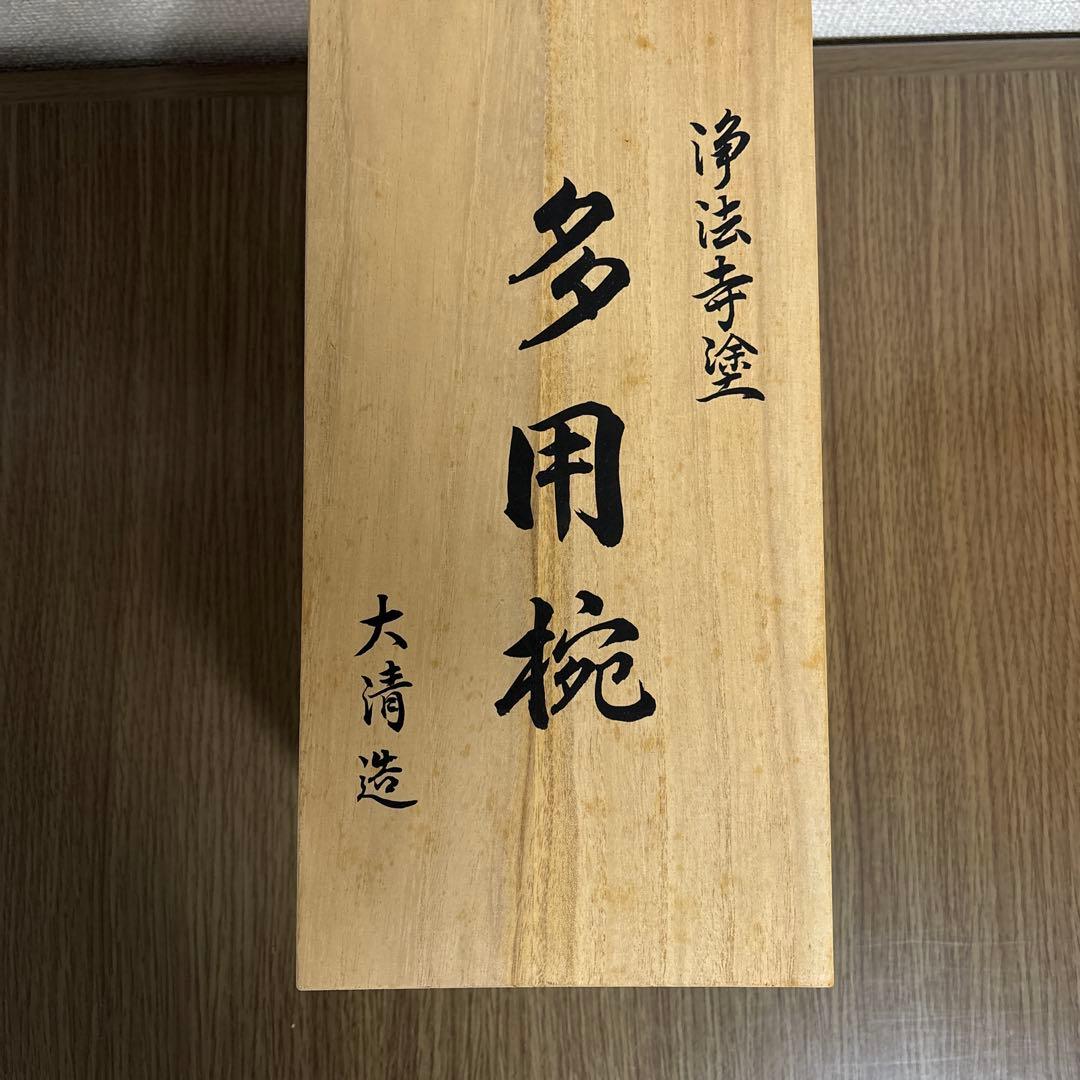 浄法寺塗
多用椀
大清造